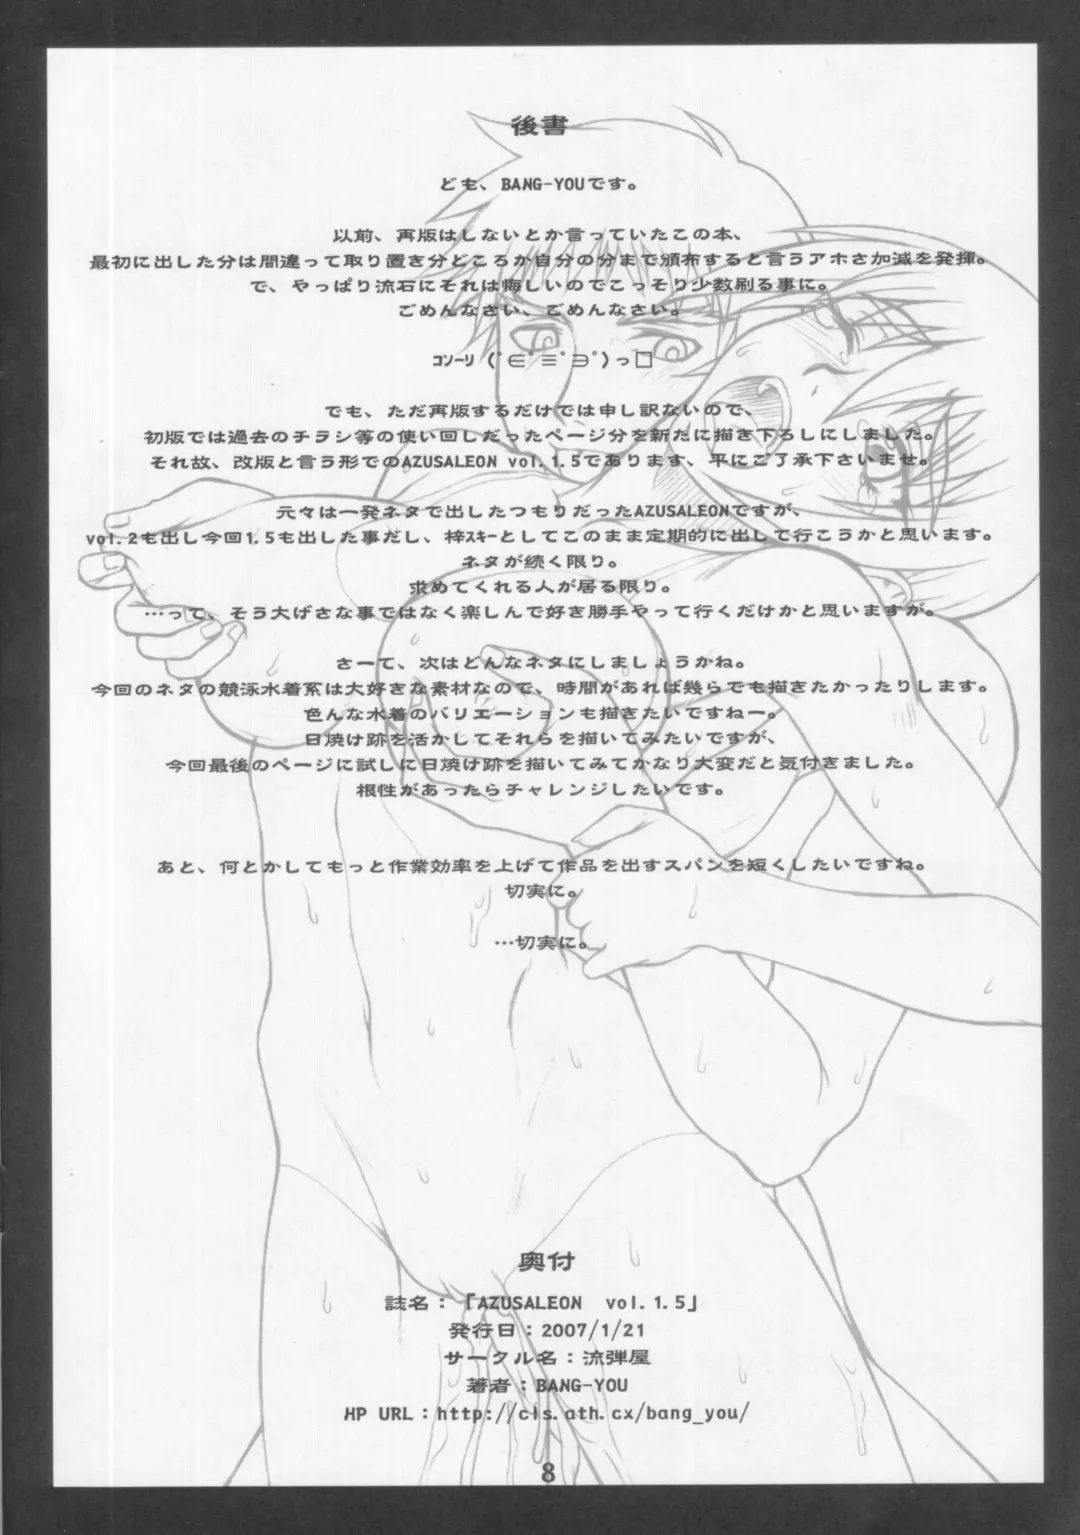 後書
ども、BANG-YOUです。
以前、再版はしないとか言っていたこの本、
最初に出した分は間違って取り置き分どころか自分の分まで頒布すると言うアホさ加減を発揮。
で、やっぱり流石にそれは悔しいのでこっそり少数刷る事に。
ごめんなさい、ごめんなさい。
ｺｿｰﾘ (ﾟ∈ﾟ≡ﾟ∋ﾟ)っ□
でも、ただ再版するだけでは申し訳ないので、
初版では過去のチラシ等の使い回しだったページ分を新たに描き下ろしにしました。
それ故、改版と言う形でのAZUSALEON vol.1.5であります、平にご了承下さいませ。
元々は一発ネタで出したつもりだったAZUSALEONですが、
vol.2も出し今回1.5も出した事だし、梓ｽｷｰとしてこのまま定期的に出して行こうかと思います。
ネタが続く限り。
求めてくれる人が居る限り。
…って、そう大げさな事ではなく楽しんで好き勝手やって行くだけかと思いますが。
さーて、次はどんなネタにしましょうかね。
今回のネタの競泳水着系は大好きな素材なので、時間があれば幾らでも描きたかったりします。
色んな水着のバリエーションも描きたいですねー。
日焼け跡を活かしてそれらを描いてみたいですが、
今回最後のページに試しに日焼け跡を描いてみてかなり大変だと気付きました。
根性があったらチャレンジしたいです。
あと、何とかしてもっと作業効率を上げて作品を出すスパンを短くしたいですね。
切実に。
…切実に。
奥付
誌名：「AZUSALEON vol.1.5」
発行日：2007/1/21
サークル名：流弾屋
著者：BANG-YOU
HP URL：http://cls.ath.cx/bang_you/
8